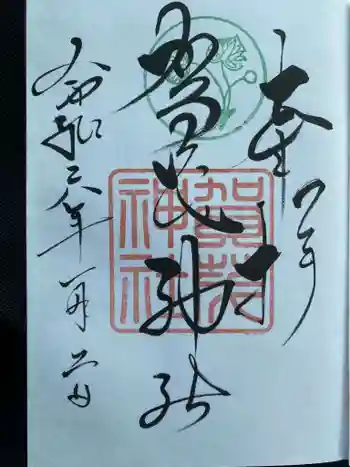 奉拝
賀茂神社
賀茂
神社
令和 年一月 日